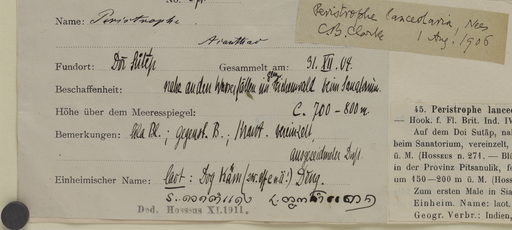 Name: Peristrophe
Acanthac
Peristrophe lanceolaria, Nees
C.B. Clarke 1 Aug. 1906
Fundort: Doi Sutep Gesammelt am: 31. XII. 04.
Beschaffenheit: nahe an den Wasserfällen im Eichenwald beim Sanatorium.
Höhe über dem Meeresspiegel: c. 700-800m
Bemerkungen: lila Bl.; gegenst. B.; Kraut. vereinzelt,
ausgezeichneter Duft
Einheimischer Name: laot: Dog
Deng.
Ded. Hosseus XI.1911.
45. Peristrophe lanceo
— Hook. f. Fl. Brit. Ind. IV
Auf dem Doi Sutäp, nah
beim Sanatorium, vereinzelt,
ü. M. (HOSSEUS n. 271. — Blü
in der Provinz Pitsanulik, fe
um 150—200 m ü. M. (HOSS
Zum ersten Male in Sia
Einheim. Name: laot.
Geogr. Verbr.: Indien,